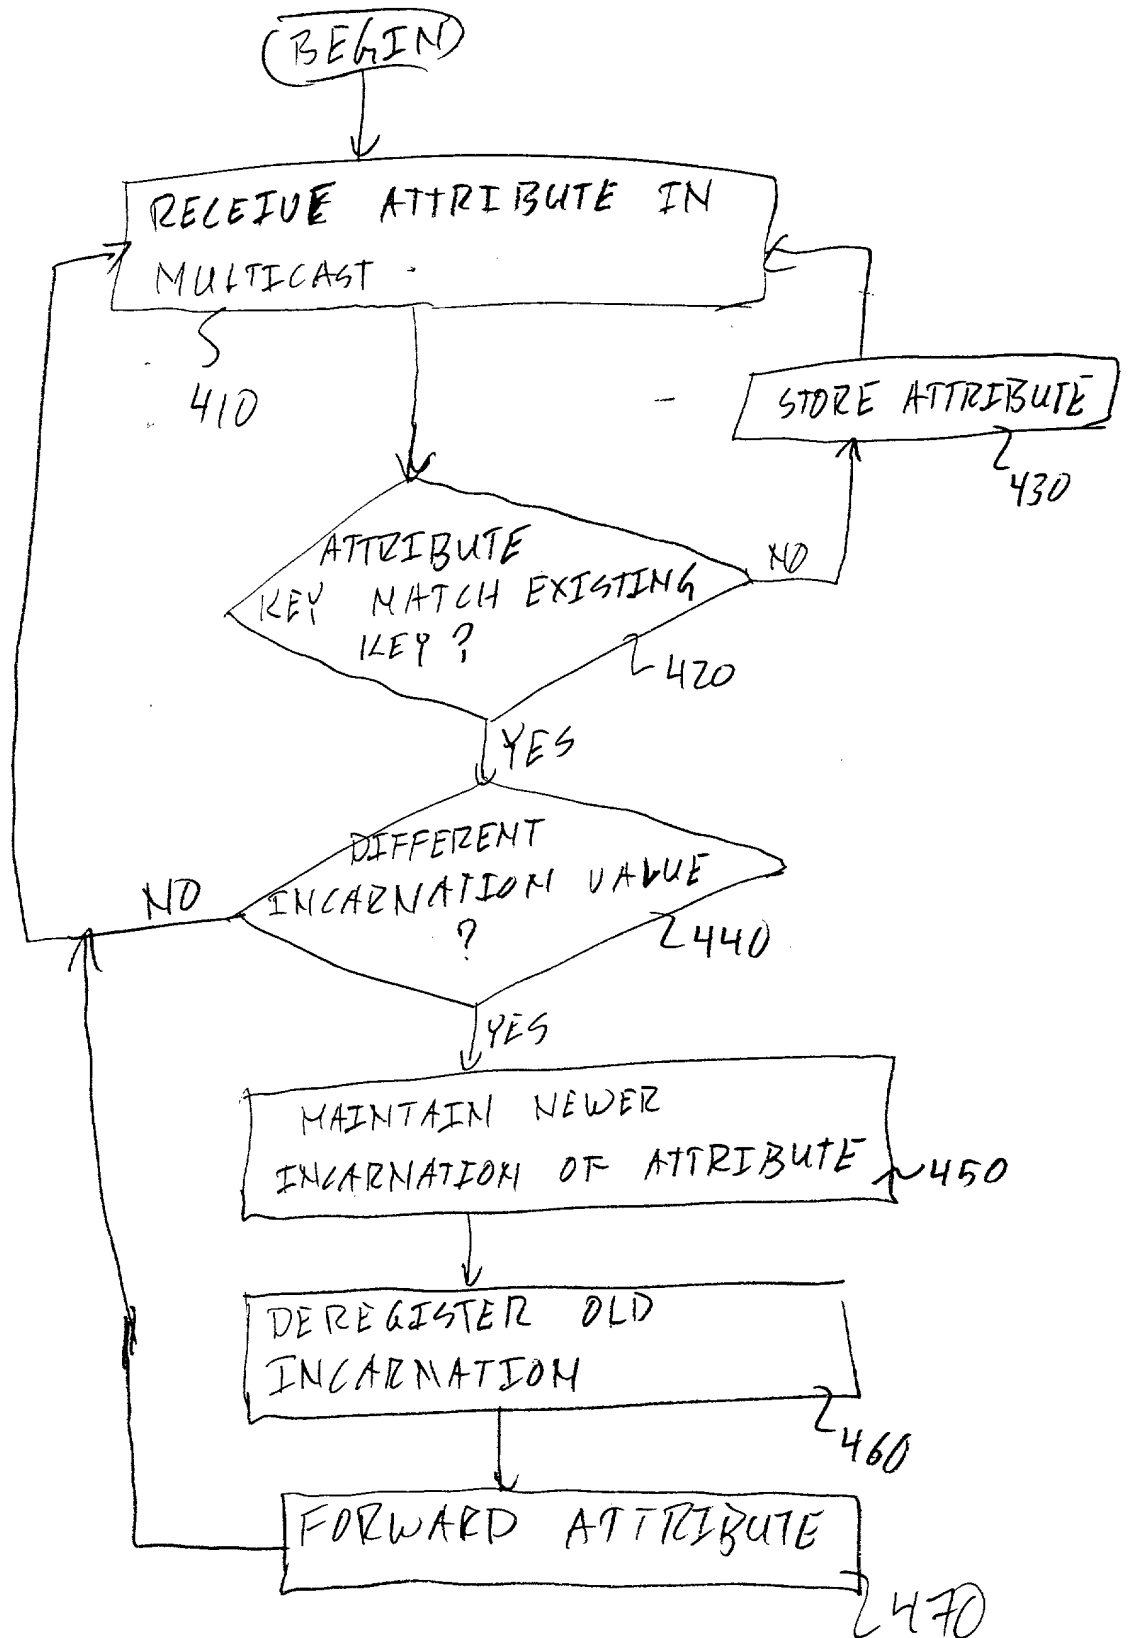 BEGIN
RECEIVE ATTRIBUTE IN
MULTICAST
410
STORE ATTRIBUTE
430
ATTRIBUTE
KEY MATCH EXISTING
KEY?
NO
420
YES
DIFFERENT
INCARNATION VALUE
?
NO
440
YES
MAINTAIN NEWER
INCARNATION OF ATTRIBUTE
450
DEREGISTER OLD
INCARNATION
460
FORWARD ATTRIBUTE
470